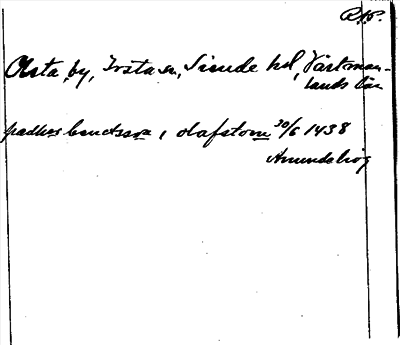 RAP.
Olsta by, Irsta sn, Siende hd, Västman-
lands län
padhers bendsson, i olafstom 30/6 1438
Amundebiög